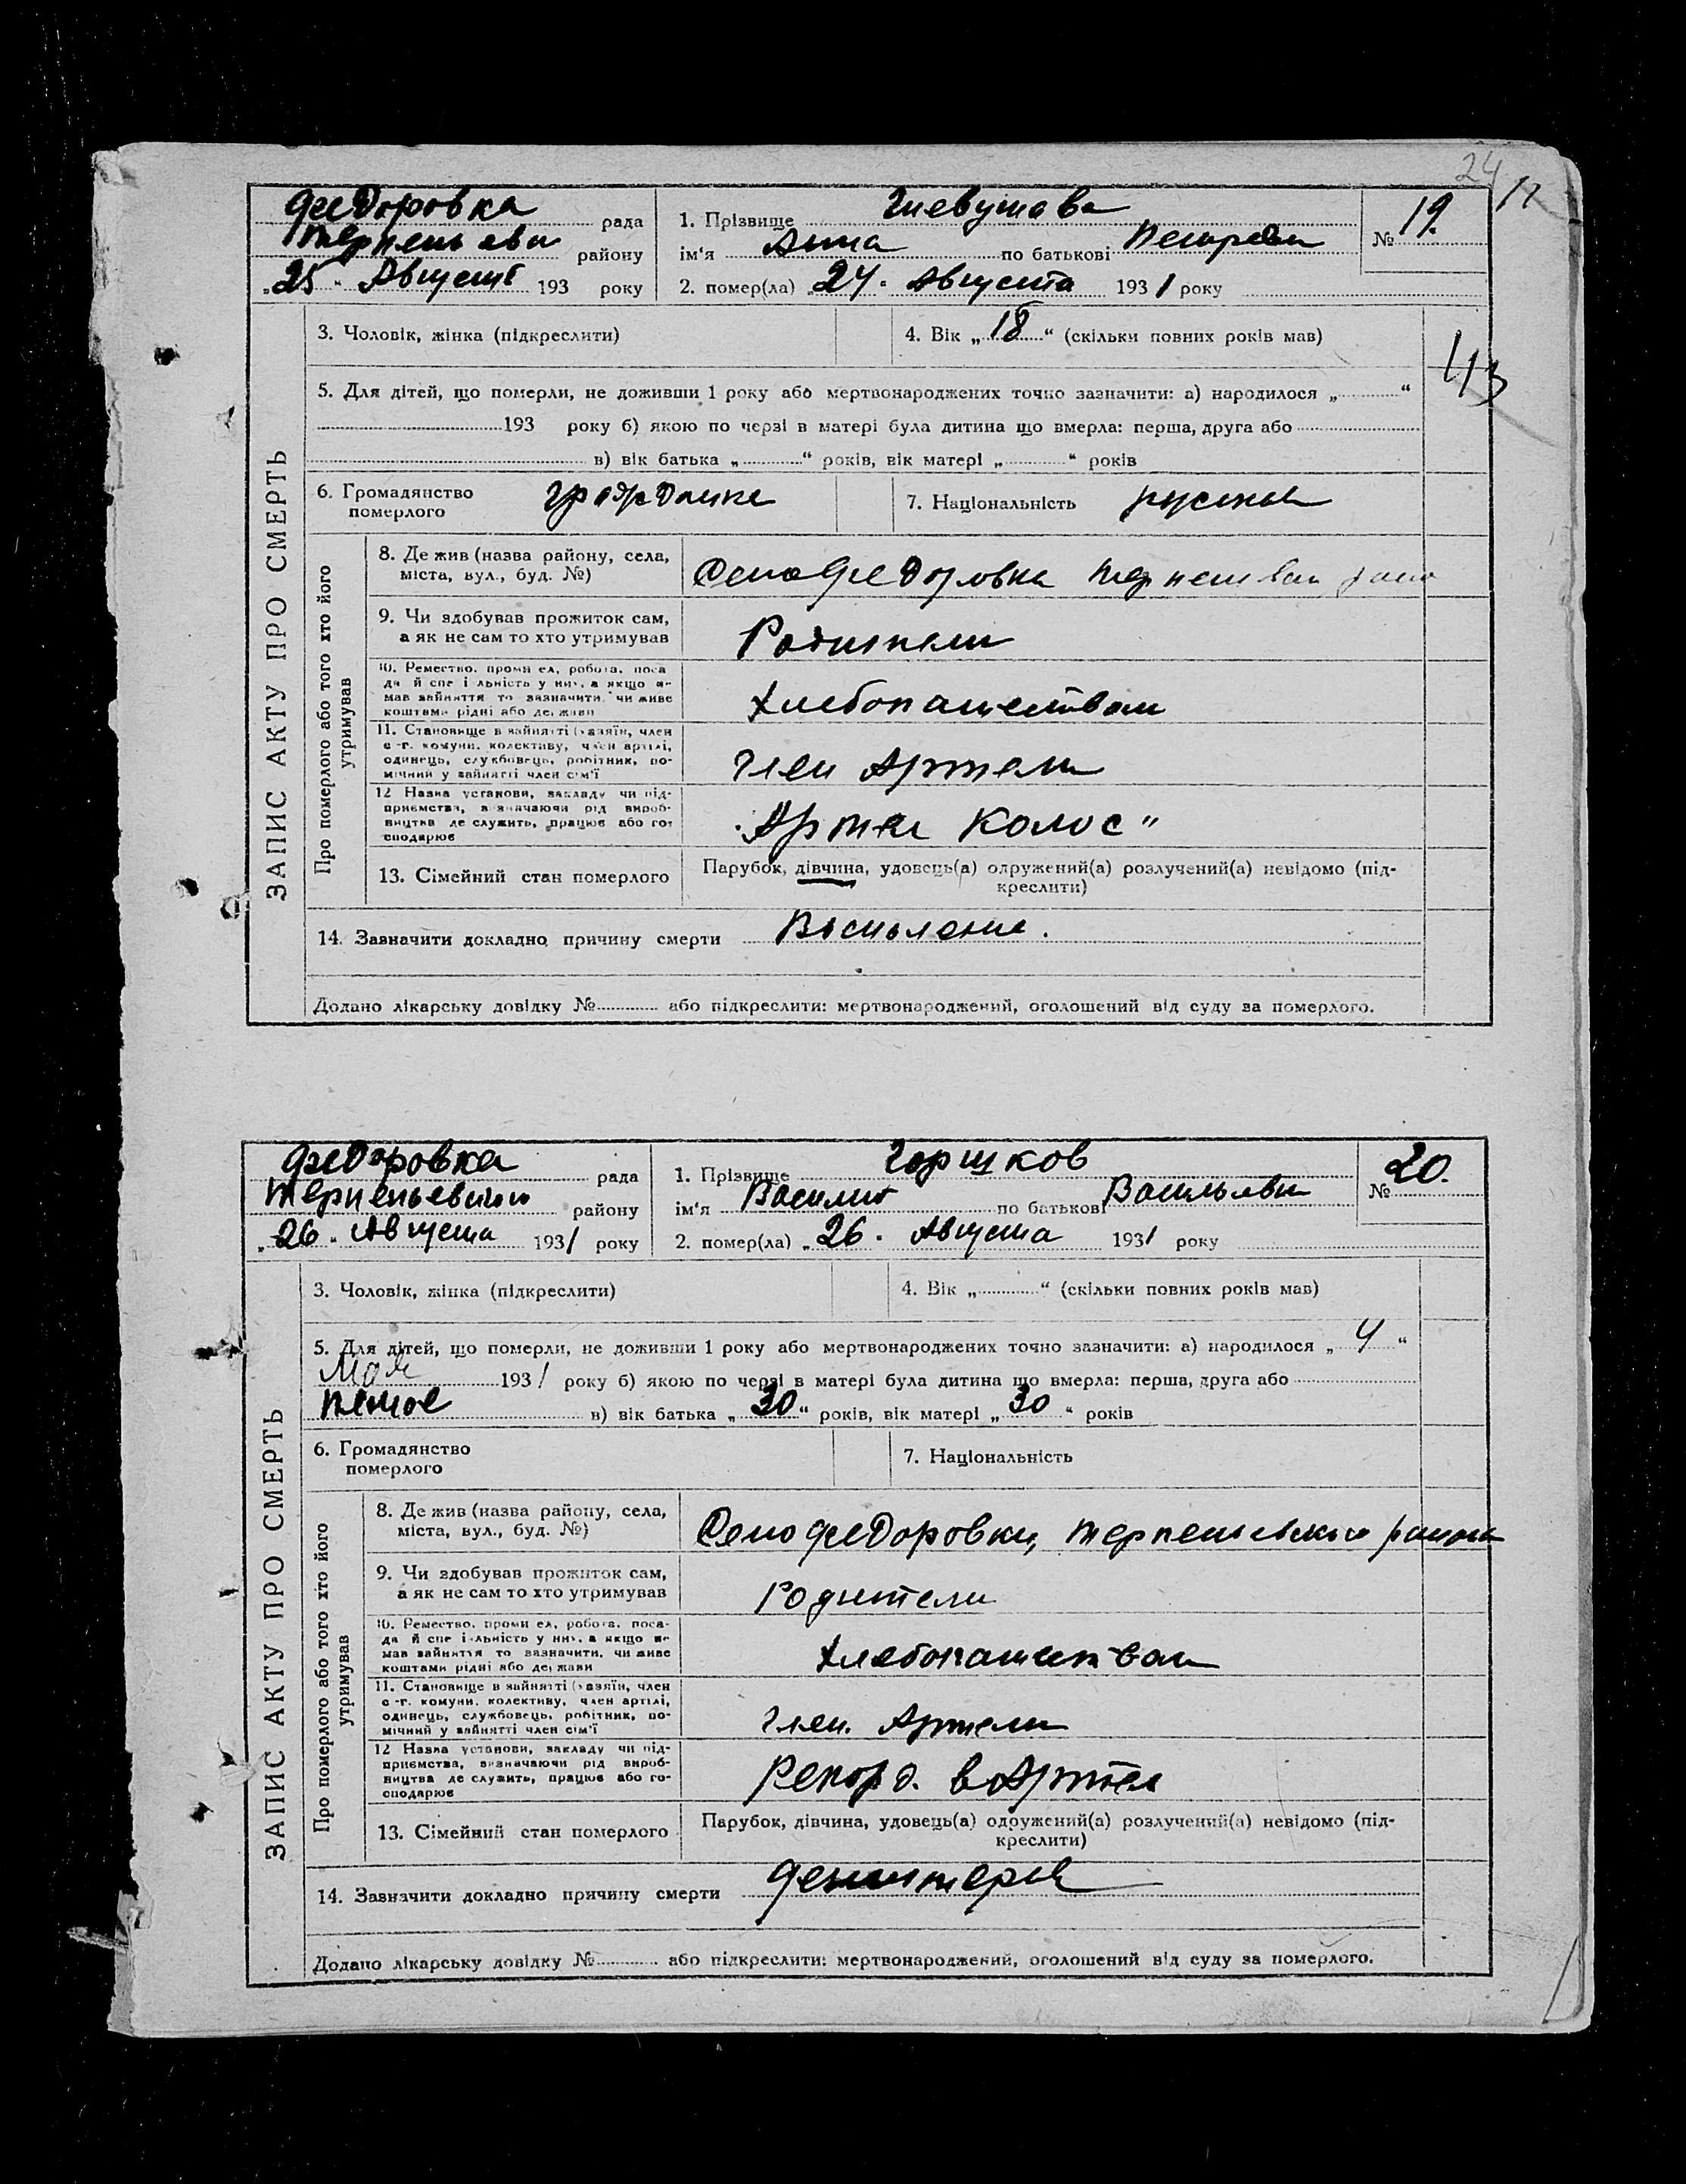 24
11
Федоровка рада
району
„25" Август 193 року
1. Прізвище
ім'я Анна по батькові Петровн
2. помер(ла) „24" Августа 1931 року
№ 19.
ЗАПИС АКТУ ПРО СМЕРТЬ
3. Чоловік, жінка (підкреслити)
4. Вік „18" (скільки повних років мав)
113
5. Для дітей, що померли, не доживши 1 року або мертвонароджених точно зазначити: а) народилося „ "
193 року б) якою по черзі в матері була дитина що вмерла: перша, друга або
в) вік батька „ " років, вік матері „ " років
6. Громадянство
померлого
7. Національність
Про померлого або того хто його
утримував
8. Де жив (назва району, села,
міста, вул., буд. №)
Село Федоровка
9. Чи здобував прожиток сам,
а як не сам то хто утримував
Родители
10. Ремество, промисел, робота, поса
да й спеціяльність у них, а якщо не
мав зайняття то зазначити, чи живе
коштами рідні або держави
Хлебопашеством
11. Становище в зайнятті (хазяїн, член
с.-г. комуни, колективу, член артілі,
одинець, службовець, робітник, по-
мічний у зайнятті член сім'ї
член Артели
12 Назва установи, закладу чи під-
приємства, визначаючи рід вироб-
ництва де служить, працює або го-
сподарює
„Артел Колос"
13. Сімейний стан померлого
Парубок, дівчина, удовець(а) одружений(а) розлучений(а) невідомо (під-
креслити)
14. Зазначити докладно причину смерти
Додано лікарську довідку № або підкреслити: мертвонароджений, оголошений від суду за померлого.
Федоровка рада
району
„26" Августа 1931 року
1. Прізвище Горшков
ім'я Василий по батькові Васильевич
2. помер(ла) „26" Августа 1931 року
№ 20.
ЗАПИС АКТУ ПРО СМЕРТЬ
3. Чоловік, жінка (підкреслити)
4. Вік „ " (скільки повних років мав)
5. Для дітей, що померли, не доживши 1 року або мертвонароджених точно зазначити: а) народилося „4"
Мая 1931 року б) якою по черзі в матері була дитина що вмерла: перша, друга або
в) вік батька „30" років, вік матері „30" років
6. Громадянство
померлого
7. Національність
Про померлого або того хто його
утримував
8. Де жив (назва району, села,
міста, вул., буд. №)
Село Федоровки, Терпеньевского района
9. Чи здобував прожиток сам,
а як не сам то хто утримував
Родители
10. Ремество, промисел, робота, поса-
да й спеціяльність у них, а якщо не
мав зайняття то зазначити, чи живе
коштами рідні або держави
Хлебопашеством
11. Становище в зайнятті (хазяїн, член
с.-г. комуни, колективу, член артілі,
одинець, службовець, робітник, по-
мічний у зайнятті член сім'ї
член. Артели
12 Назва установи, закладу чи під-
приємства, визначаючи рід вироб-
ництва де служить, працює або го-
сподарює
Рекорд. в Артел
13. Сімейний стан померлого
Парубок, дівчина, удовець(а) одружений(а) розлучений(а) невідомо (під-
креслити)
14. Зазначити докладно причину смерти
Додано лікарську довідку № або підкреслити: мертвонароджений, оголошений від суду за померлого.